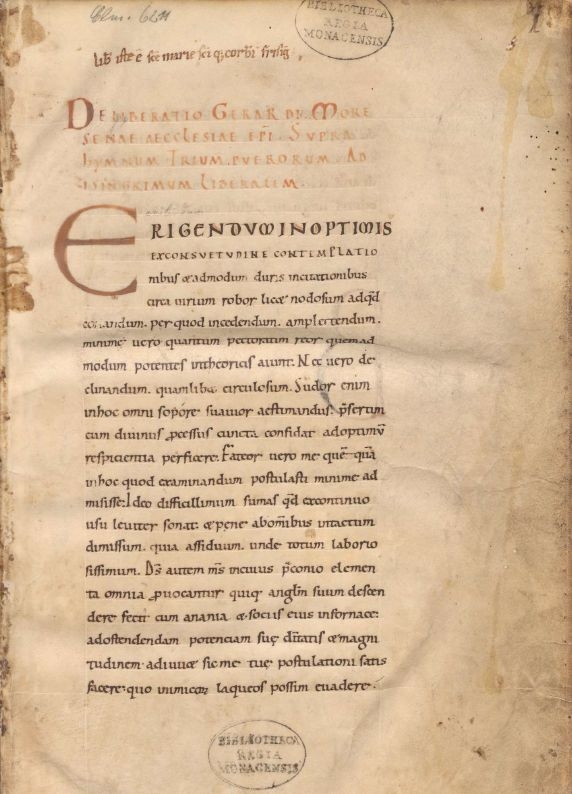 Clm. 6211
BIBLIOTHECA
REGIA
MONACENSIS
lib iste ē scē marie sci q; corbī frisiḡ
DELIBERATIO GERARDI MORE
SENAE AECCLESIAE EPĪ. SUPRA
HYMNUM TRIUM PUERORUM. AD
ISINGRIMUM LIBERALEM.
ERIGENDUM IN OPTIMIS
EX CONSVETUDINE CONTEMPLATIO
nibus & admodum duris incitationibus
circa uirium robor lic& nodosum adqđ
eq;andum. per quod incedendum. amplectendum.
minime uero quantum pectoratim reor quemad
modum potentes intheoricis aiunt. Nec uero de
clinandum. quamlib& circulosum. Sudor enim
inhoc omni sopore suauior aestimandus. p̄sertim
cum diuinus ꝓcessus cuncta confidat adoptimū
respicientia perficere. Fateor uero me quē quā
inhoc quod examinandum postulasti minime ad
misisse. Ideo difficillimum sumas qđ excontinuo
usu leuiter sonat. & pene abom̄ibus intactum
dimissum. quia assiduum. unde totum laborio
sissimum. Dš autem m̄s incuius p̄conio elemen
ta omnia ꝓuocantur quiq; angl̄m suum descen
dere fecit cum anania & sociis eius infornace.
adostendendam potenciam suę diītatis & magni
tudinem. adiuu& sic me tuę postulationi satis
facere. quo inimicoꝝ laqueos possim euadere.
BIBLIOTHECA
REGIA
MONACENSIS